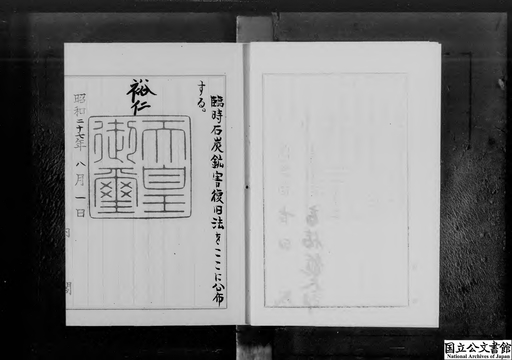 臨時石炭鉱害復旧法をここに公布
する。
裕仁
天皇
御璽
昭和二十七年八月一日
国立公文書館
National Archives of Japan